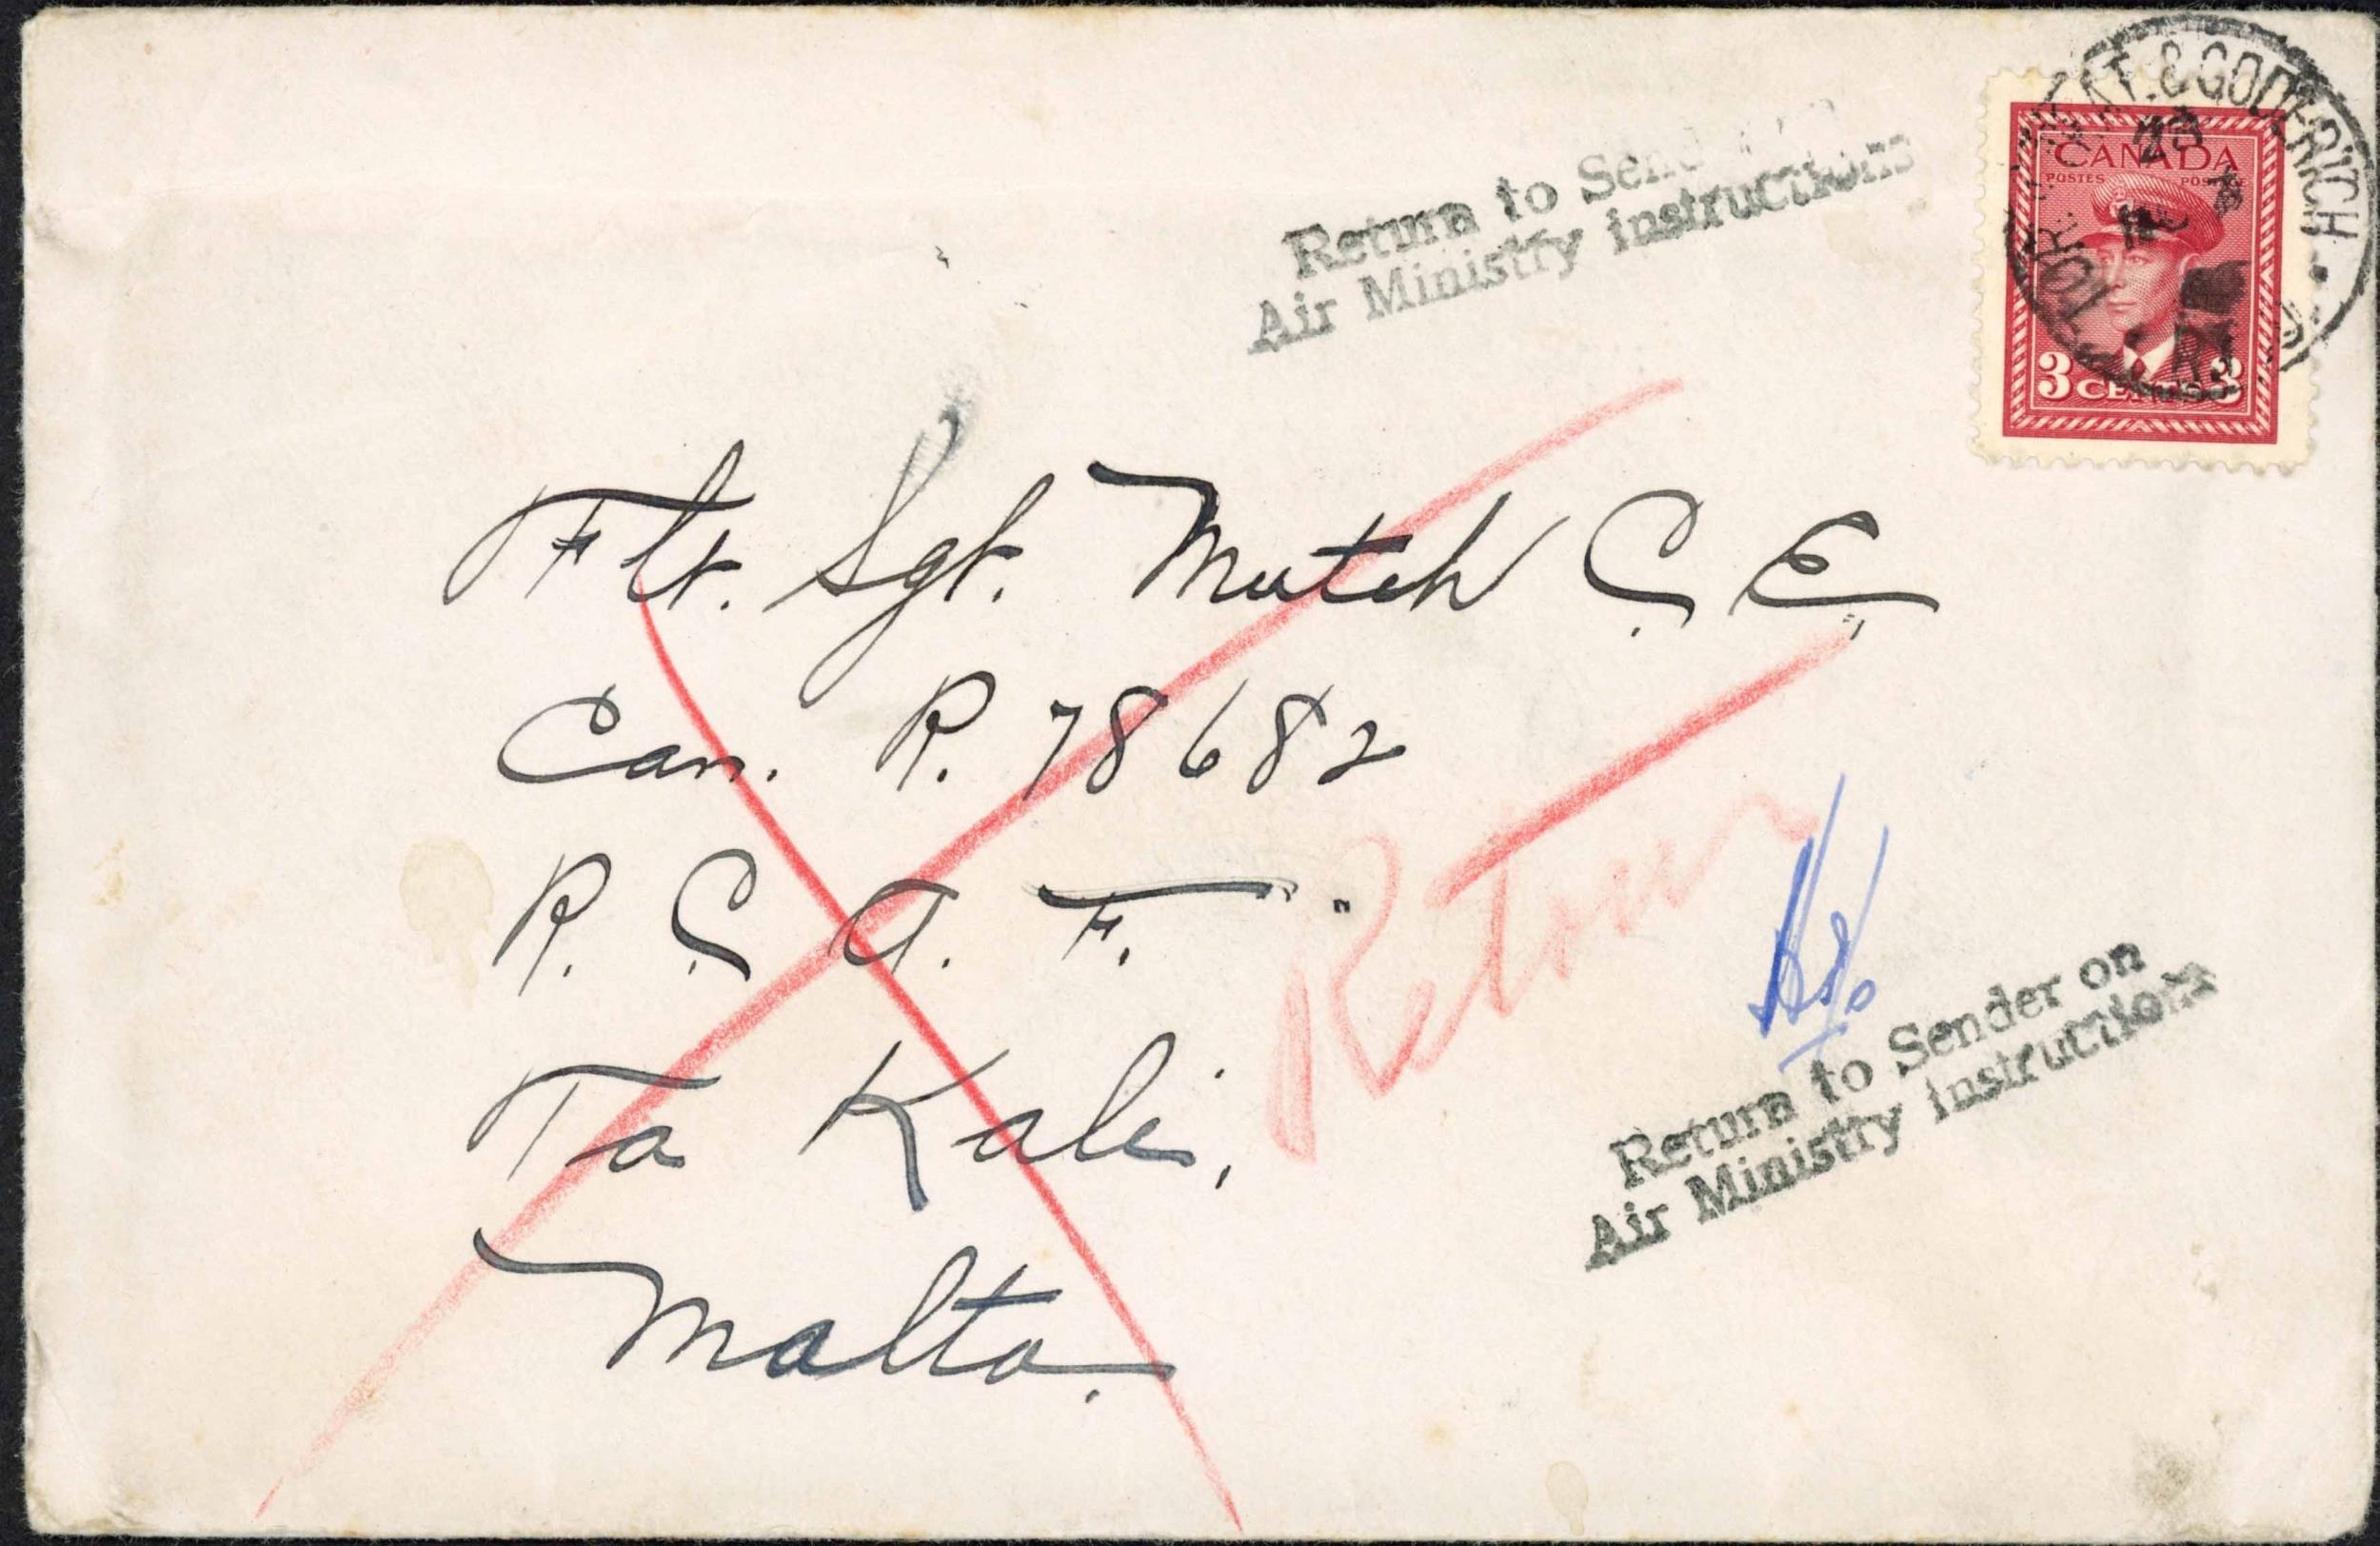 Return to Sender
Air Ministry instructions
& GODERICH
CANADA
POSTES POSTAGE
3 CENTS 3
Flt. Sgt. Mutch C. E.
Can. R. 78682
R. C. A. F.
Ta Kali,
Malta.
Return
Return to Sender on
Air Ministry instructions